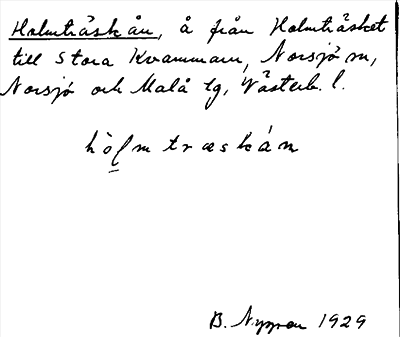 Holmträskån, å från Holmträsket
till Stora Kvammarn, Norsjö sn,
Norsjö och Malå tg, Västerb. l.
hòl̠mtræskán
B. Nygren 1929